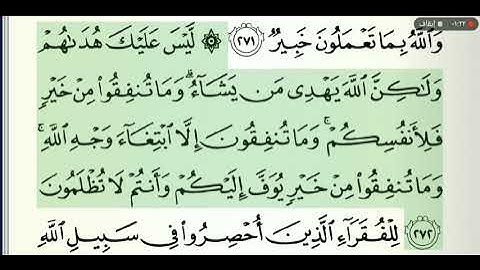 ٠١:٢٢ إيقاف
وَٱللَّهُ بِمَا تَعۡمَلُونَ خَبِيرٞ ٢٧١ ۞ لَّيۡسَ عَلَيۡكَ هُدَىٰهُمۡ
وَلَٰكِنَّ ٱللَّهَ يَهۡدِي مَن يَشَآءُۗ وَمَا تُنفِقُواْ مِنۡ خَيۡرٖ
فَلِأَنفُسِكُمۡۚ وَمَا تُنفِقُونَ إِلَّا ٱبۡتِغَآءَ وَجۡهِ ٱللَّهِۚ
وَمَا تُنفِقُواْ مِنۡ خَيۡرٖ يُوَفَّ إِلَيۡكُمۡ وَأَنتُمۡ لَا تُظۡلَمُونَ
٢٧٢ لِلۡفُقَرَآءِ ٱلَّذِينَ أُحۡصِرُواْ فِي سَبِيلِ ٱللَّهِ